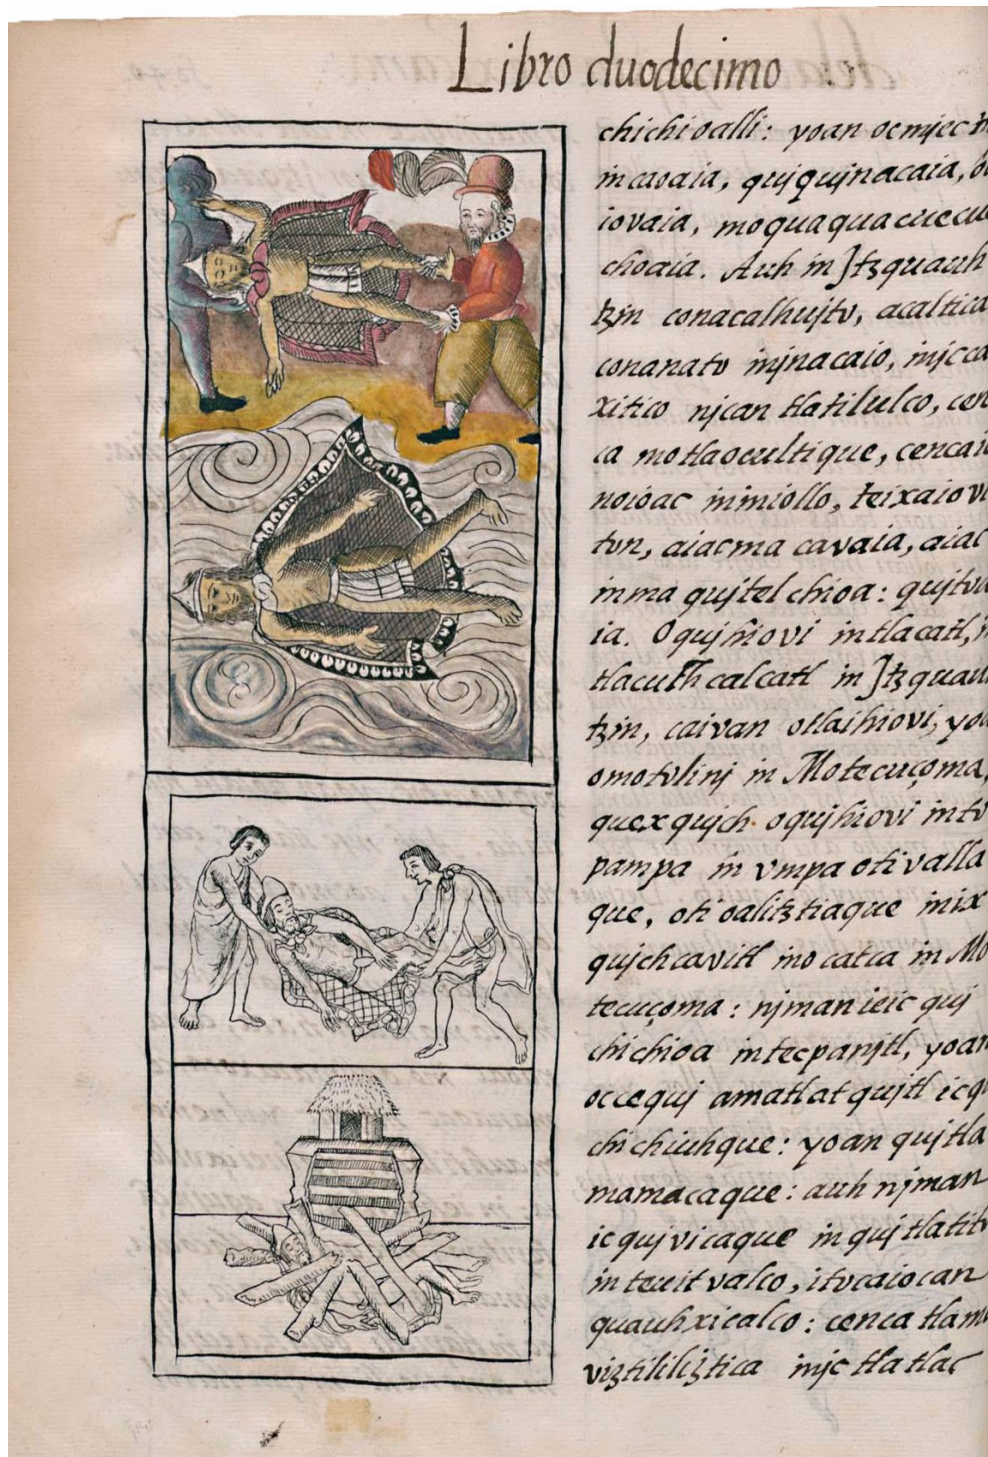 Libro duodecimo
chichioalli: yoan ocmjec
in cavaia, qujqujnacaia,
iovaia, moquaquacuecu
choaia. Auh in Jtzquauh
tzin conacalhujto, acaltica
conanato injnacaio, injc ca
xitico njcan tlatilulco, cen
ca motlaocultique, cencaic
noioac ininiollo, teixaiovi
ton, aiacma cavaia, aiac
inma qujtelchioa: qujtoa
ia. Oqujhiovi in tlacatl,
tlacuchcalcatl in Jtzquauh
tzin, caivan otlaihiovi, yoan
omotolinj in Motecuçoma,
quexqujch oqujhiovi in to
pampa in vmpa otivalla
que, oti oalitztiaque in ix
qujchcavitl ino catca in Mo
tecuçoma: njman ieic quj
chichioa in tecpanjtl, yoan
occequj amatlatqujtl ic qu
chichiuhque: yoan qujtla
mamacaque: auh njman
ic qujvicaque in qujtlatito
in teuit valco, itocaiocan
quauhxicalco: cenca tlama
viztililiztica injc tlatlac